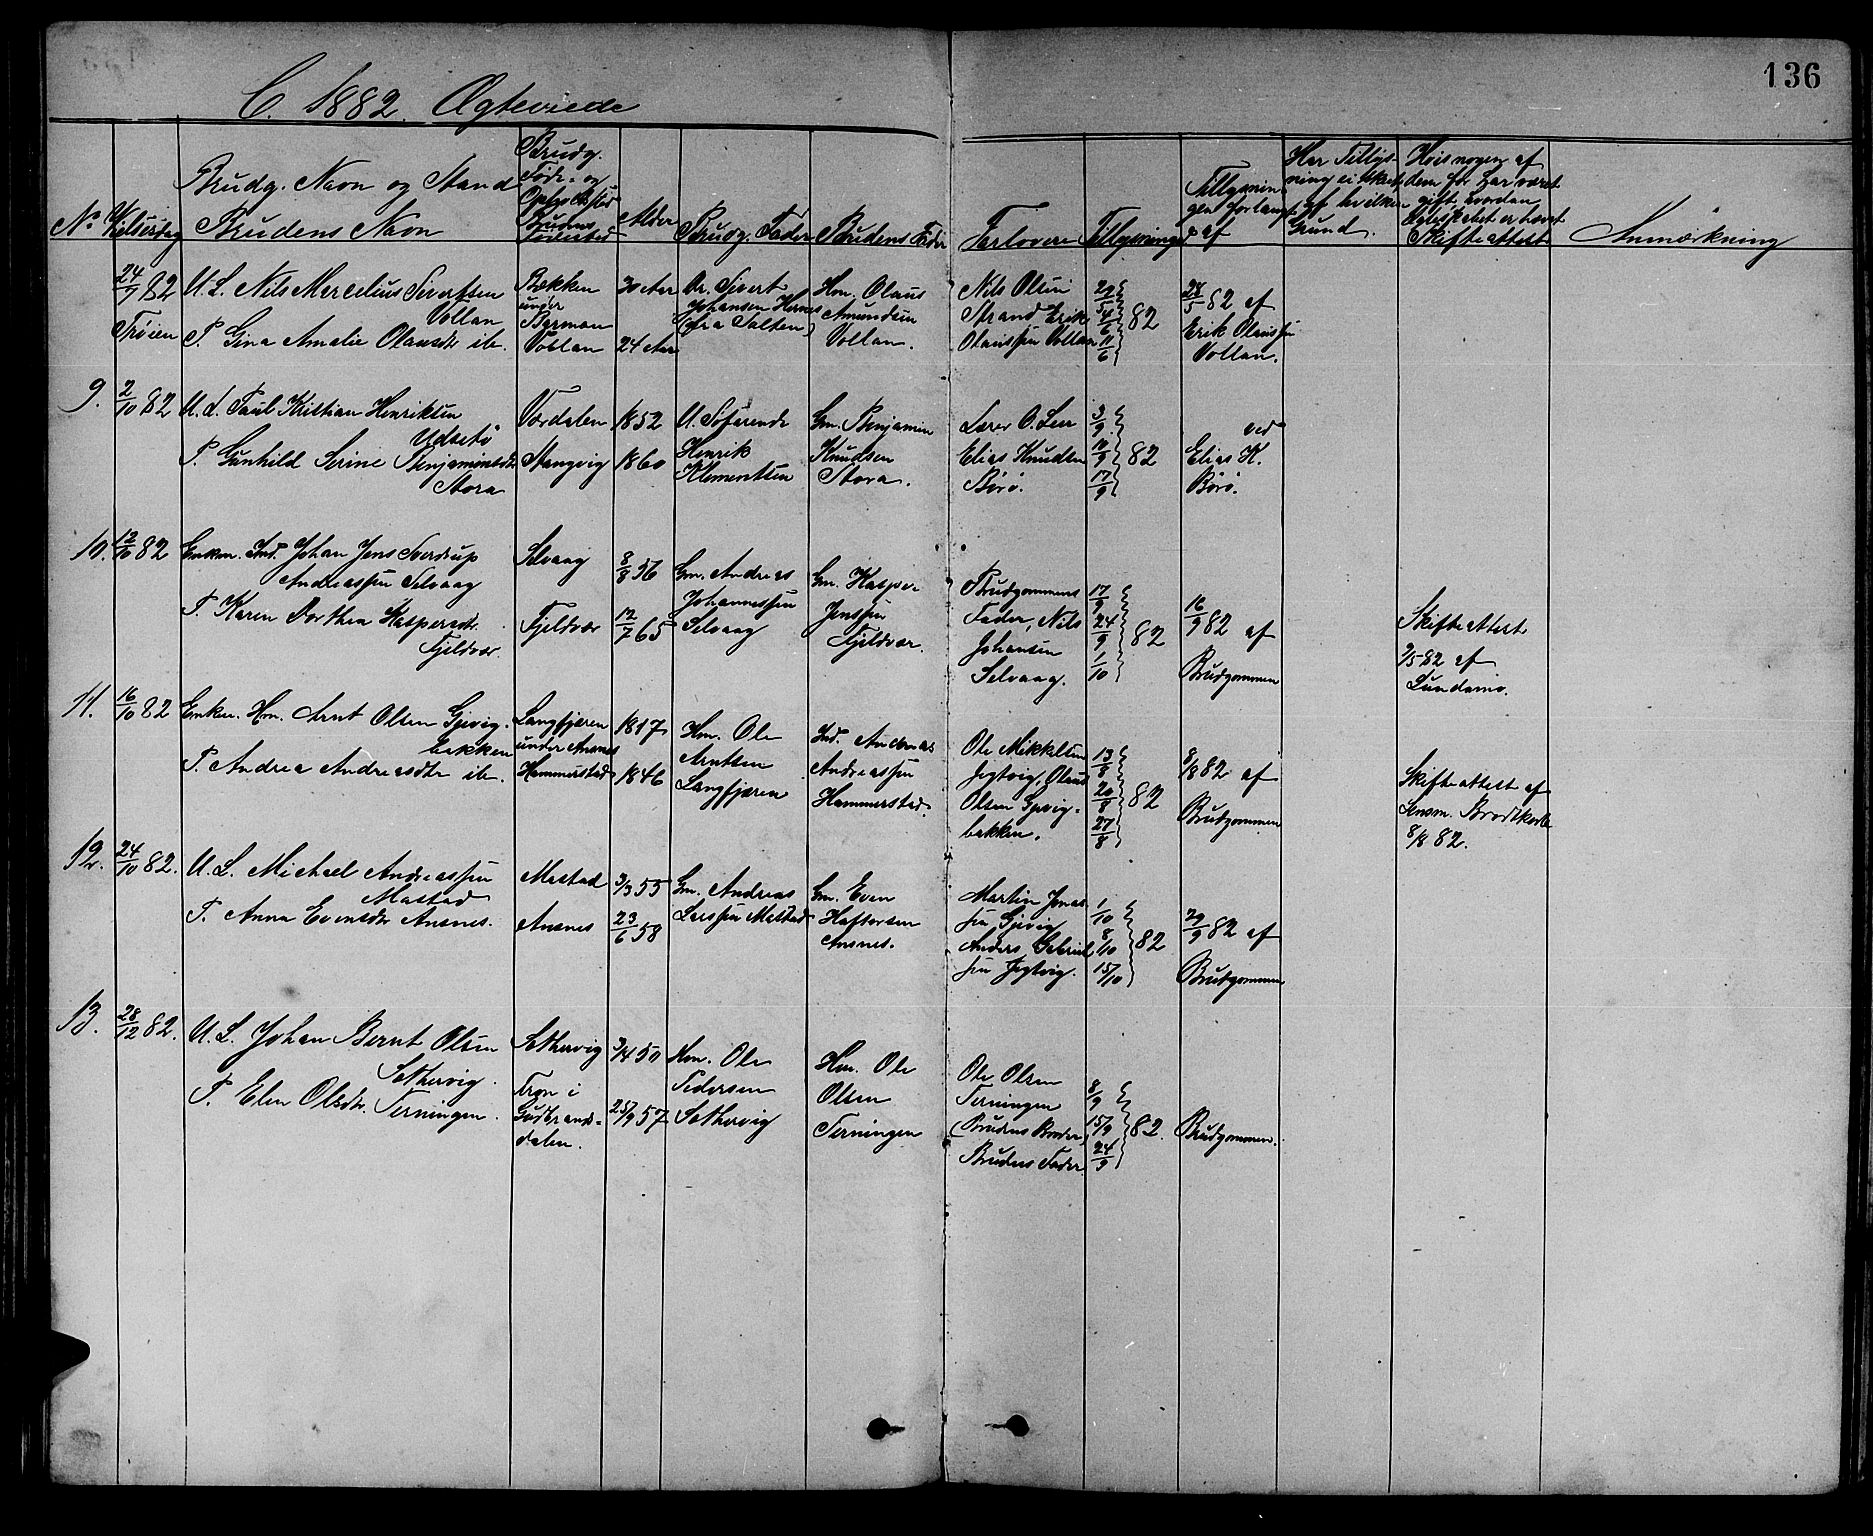 136
C. 1882. Ægteviede
No
Vielsesdag
Brudg. Navn og Stand
Brudens Navn
Brudg.
Føde- og
Brudens
Fødested
Alder
Brudg. Fader
Brudens Fader
Forlovere
Tillysninger
Tillysnin-
gen forlangt
af
Har Tillys-
ning ei skeet,
af hvilken
Grund.
Hvis nogen af
dem før har været
gift, hvordan
Egteskabet er hævet
Skifteattest
Anmærkning
24/7 82
Trøien
U. L. Nils Mercelius Sivertsen
Vollan
P. Gina Amalie Olausdtr ib.
Bækken
under
Vollan
30 Aar
24 Aar
Sivert
Johansen Hernes
(fra Salten)
Hm. Olaus
Amundsen
Vollan.
Nils Olsen
Strand Erik
Olaussen Vollan
4/6
11/6
82
82 af
Erik Olaussen
Vollan.
9.
2/10 82
U. L. Paul Kristian Henriksen
Udsetø
P. Gunhild Serine Benjaminsdtr
Stora
Værdalen
Stangvig
1852
1860
Henrik
Klementsen
Gm. Benjamin
Knudsen
Stora.
Lærer O. Lien
Elias Knudsen
Börö.
3/9
10/9
17/9
82
ved
Elias K.
Börö.
10.
12/10 82
Enkem. Ind. Johan Jens Sverdrup
Andreassen Selvaag
P. Karen Dorthea Kaspersdtr.
Fjeldvær.
Selvaag
Fjeldvær
8/8 56
12/7 65
Gm. Andreas
Johannessen
Selvaag
Gm. Kasper
Jenssen
Fjeldvær.
Brudgommens
Fader, Nils
Johansen
Selvaag.
17/9
24/9
1/10
82
16/9 82 af
Brudgommen
Skifteattest
2/5 82 af
Lundamo.
11.
16/10 82
Enkem. Hm. Arnt Olsen Gjevig-
bakken
P. Andrea Andreasdtr ib.
Langfjæren
under Ansnes
Hammerstad
1817
1846
Hm. Ole
Arntsen
Langfjæren
Ind. Andreas
Andreassen
Hammerstad.
Ole Mikkelsen
Jegtvig, Olaus
Olsen Gjevig-
bakken.
13/8
20/8
27/8
82
8/8 82 af
Brudgommen
Skifteattest af
Lensm. Brodtkorb
8/8 82.
12.
24/10 82.
U. L. Michael Andreassen
Mastad
P. Anna Evensdtr Ansnes.
Mastad
Ansnes
3/3 55
23/6 58
Gm. Andreas
Larssen Mastad
Gm. Even
Haftorsen
Ansnes.
Martin Jonas-
sen Gjevig
Anders Gabriel-
sen Jegtvig.
1/10
8/10
15/10
82
29/9 82 af
Brudgommen
13.
28/12 82.
U. L. Johan Bernt Olsen
Sæthervig.
P. Elen Olsdtr. Terningen.
Sæthervig
Fron i
Gudbrands-
dalen.
3/4 50
25/9 57
Hm. Ole
Pedersen
Sæthervig
Hm. Ole
Olsen
Terningen
Ole Olsen
Terningen
(Brudens Broder)
Brudens Fader
8/9
15/9
24/9
82.
Brudgommen.